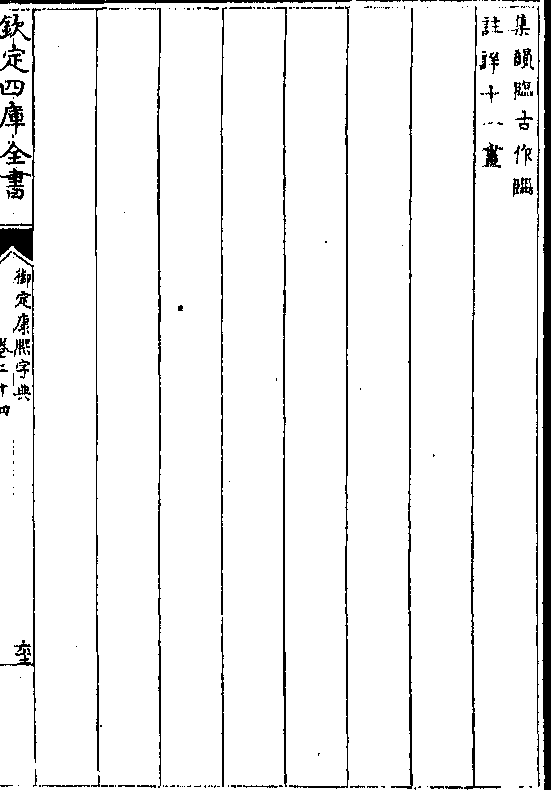 集韻臨古作𦣷
註詳十一畫
欽定四庫全書
御定康熙字典
卷二十四